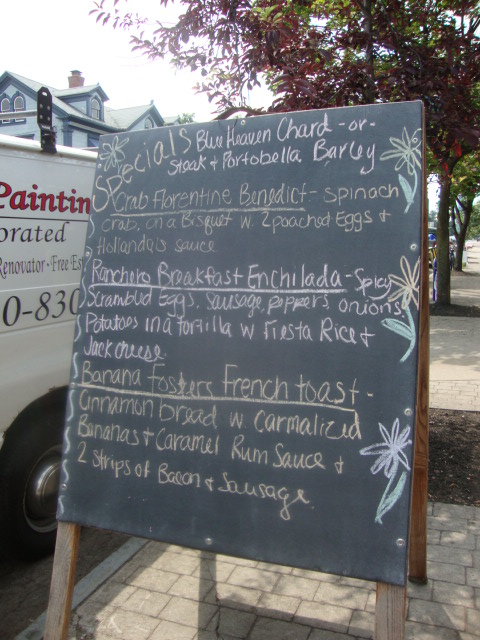 Specials
Blue Heaven Chard -or-
Steak & Portobella Barley
Crab Florentine Benedict - spinach
crab, on a Bisquet w 2 poached Eggs &
Hollanda's sauce
Ranchero Breakfast Enchilada - Spicy
Scrambled Eggs, Sausage, peppers onions
Potatoes in a tortilla w Fiesta Rice &
Jack cheese.
Banana Fosters French toast -
Cinnamon bread w Carmalized
Bananas & Caramel Rum Sauce &
2 strips of Bacon & Sausage.
Paintin
orated
Renovator • Free Est
0-830